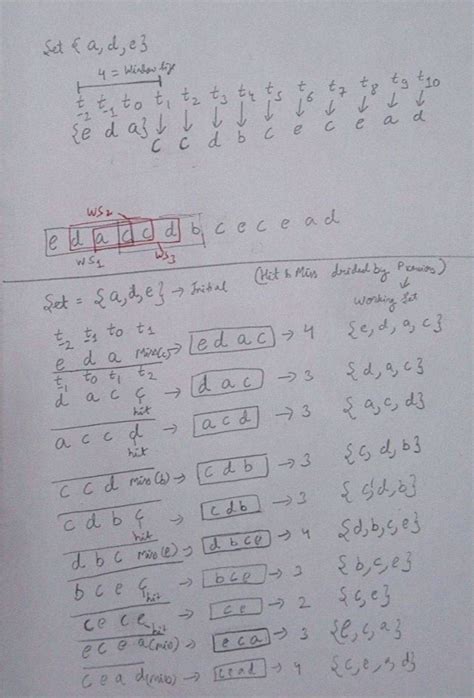 Set {a, d, e}
4 = Window size
t-2 t-1 t0 t1 t2 t3 t4 t5 t6 t7 t8 t9 t10
{e d a} c c d b c e c e a d
WS2
e d a c c d b c e c e a d
WS1 WS3
Set = {a,d,e} → Initial (Hit & Miss decided by Previous)
Working Set
t-2 t-1 t0 t1
e d a Miss(c) → e d a c → 4 {e, d, a, c}
t-1 t0 t1 t2
d a c c → d a c → 3 {d, a, c}
hit
a c c d → a c d → 3 {a, c, d}
hit
c c d Miss(b) → c d b → 3 {c, d, b}
c d b c → c d b → 3 {c, d, b}
hit
d b c Miss(e) → d b c e → 4 {d, b, c, e}
b c e c → b c e → 3 {b, c, e}
hit
c e c e → c e → 2 {c, e}
hit
e c e a(miss) → e c a → 3 {e, c, a}
c e a d(miss) → c e a d → 4 {c, e, a, d}